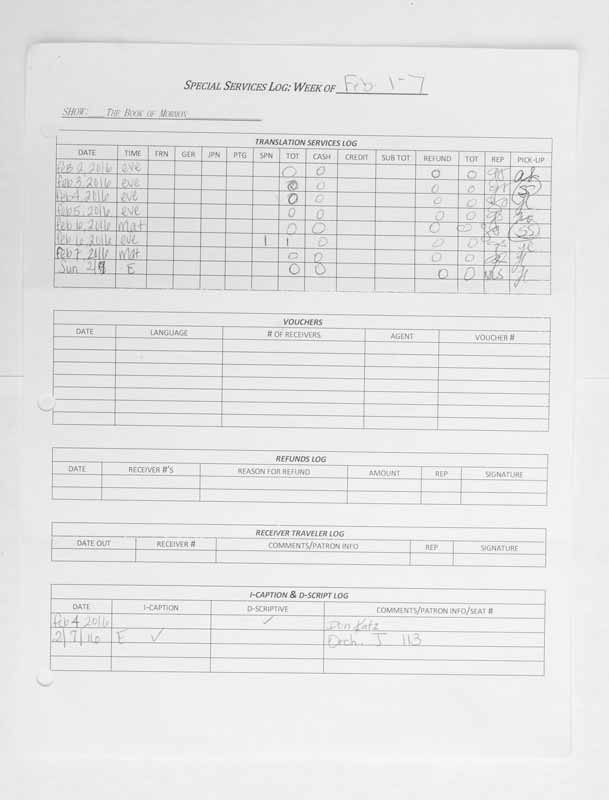 SPECIAL SERVICES LOG: WEEK OF Feb 1-7
SHOW: THE BOOK OF MORMON
TRANSLATION SERVICES LOG
DATE TIME FRN GER JPN PTG SPN TOT CASH CREDIT SUB TOT REFUND TOT REP PICK-UP
Feb 2, 2016 eve 0 0 0 0
Feb 3, 2016 eve 0 0 0 0
Feb 4, 2016 eve 0 0 0 0
Feb 5, 2016 eve 0 0 0 0
Feb 6, 2016 Mat 0 0 0 0 SS
Feb 6, 2016 eve 1 1 0 0 0
Feb 7, 2016 Mat 0 0 0 0
Sun 2/7 E 0 0 0 0 NLS
VOUCHERS
DATE LANGUAGE # OF RECEIVERS AGENT VOUCHER #
REFUNDS LOG
DATE RECEIVER #'S REASON FOR REFUND AMOUNT REP SIGNATURE
RECEIVER TRAVELER LOG
DATE OUT RECEIVER # COMMENTS/PATRON INFO REP SIGNATURE
I-CAPTION & D-SCRIPT LOG
DATE I-CAPTION D-SCRIPTIVE COMMENTS/PATRON INFO/SEAT #
Feb 4 2016 ✓ Don Katz
2/7/16 E ✓ Orch. J 113